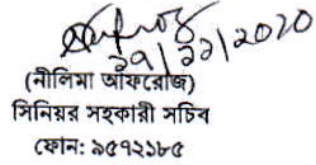 ২৯/১১/২০২০
(নীলিমা আফরোজ)
সিনিয়র সহকারী সচিব
ফোন: ৯৫৭২১৮৫